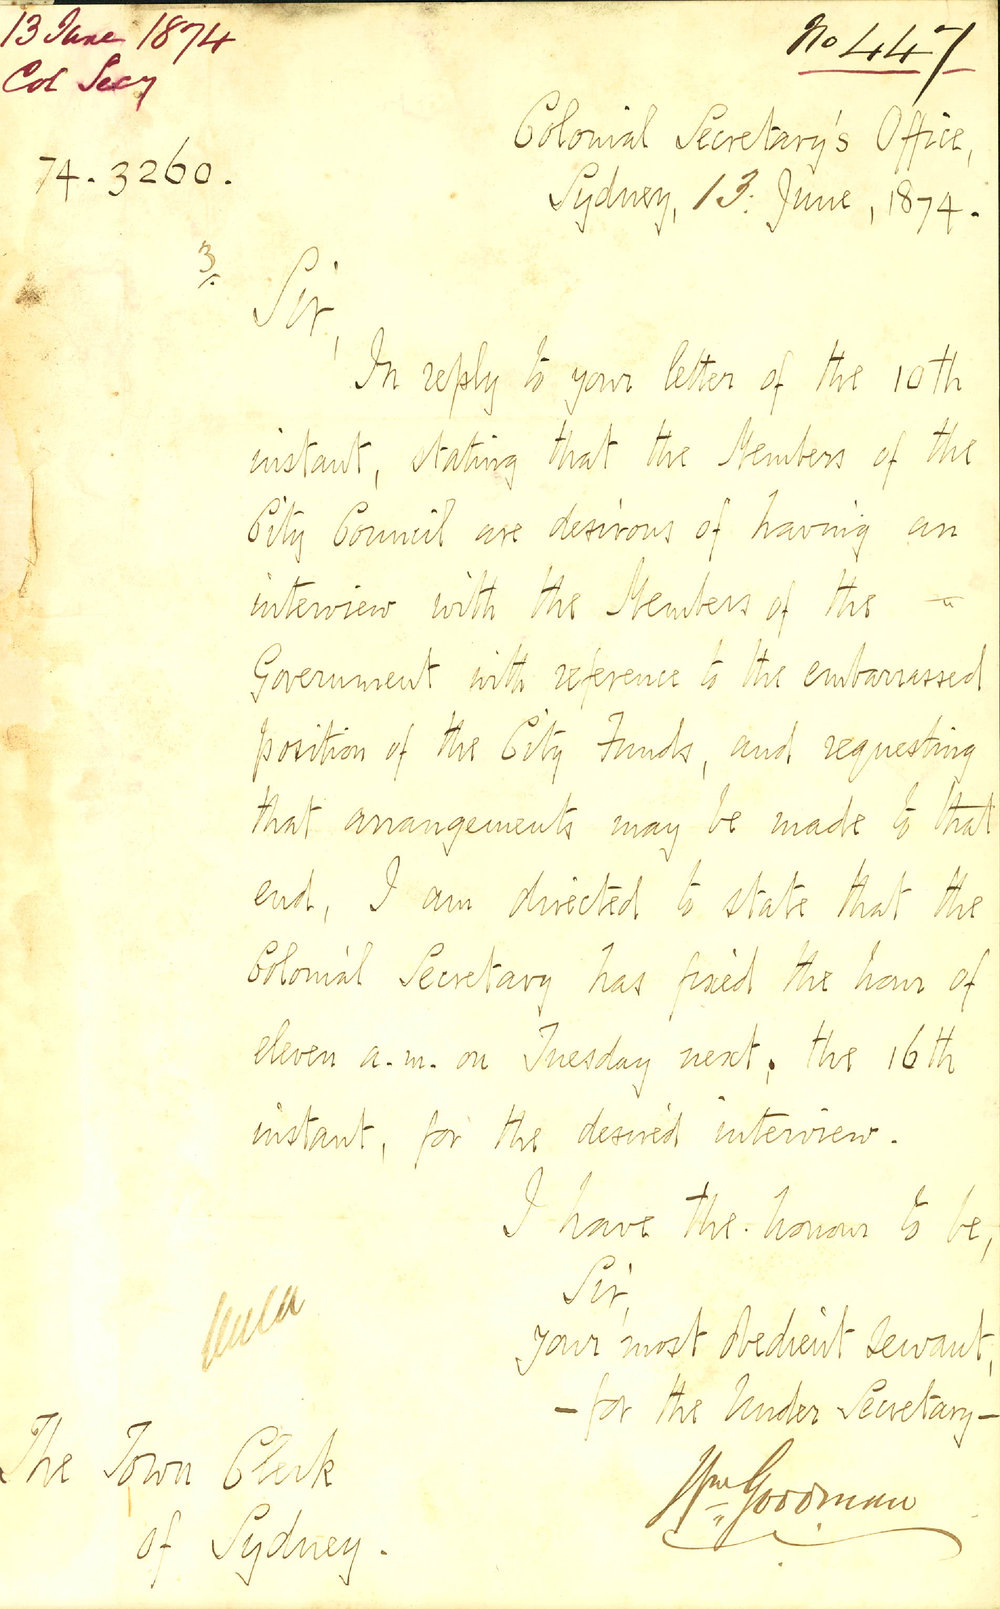 13 June 1874
Col Secy
No 447
74.3260.
Colonial Secretary's Office,
Sydney, 13. June, 1874.
3
Sir,
In reply to your letter of the 10th
instant, stating that the Members of the
City Council are desirous of having an
interview with the Members of the —
Government with reference to the embarrassed
position of the City Funds, and requesting
that arrangements may be made to that
end, I am directed to state that the
Colonial Secretary has fixed the hour of
eleven a.m. on Tuesday next, the 16th
instant, for the desired interview.
I have the honour to be,
Sir,
Your most obedient servant,
- for the Under Secretary -
Wm Goodman
The Town Clerk
of Sydney.